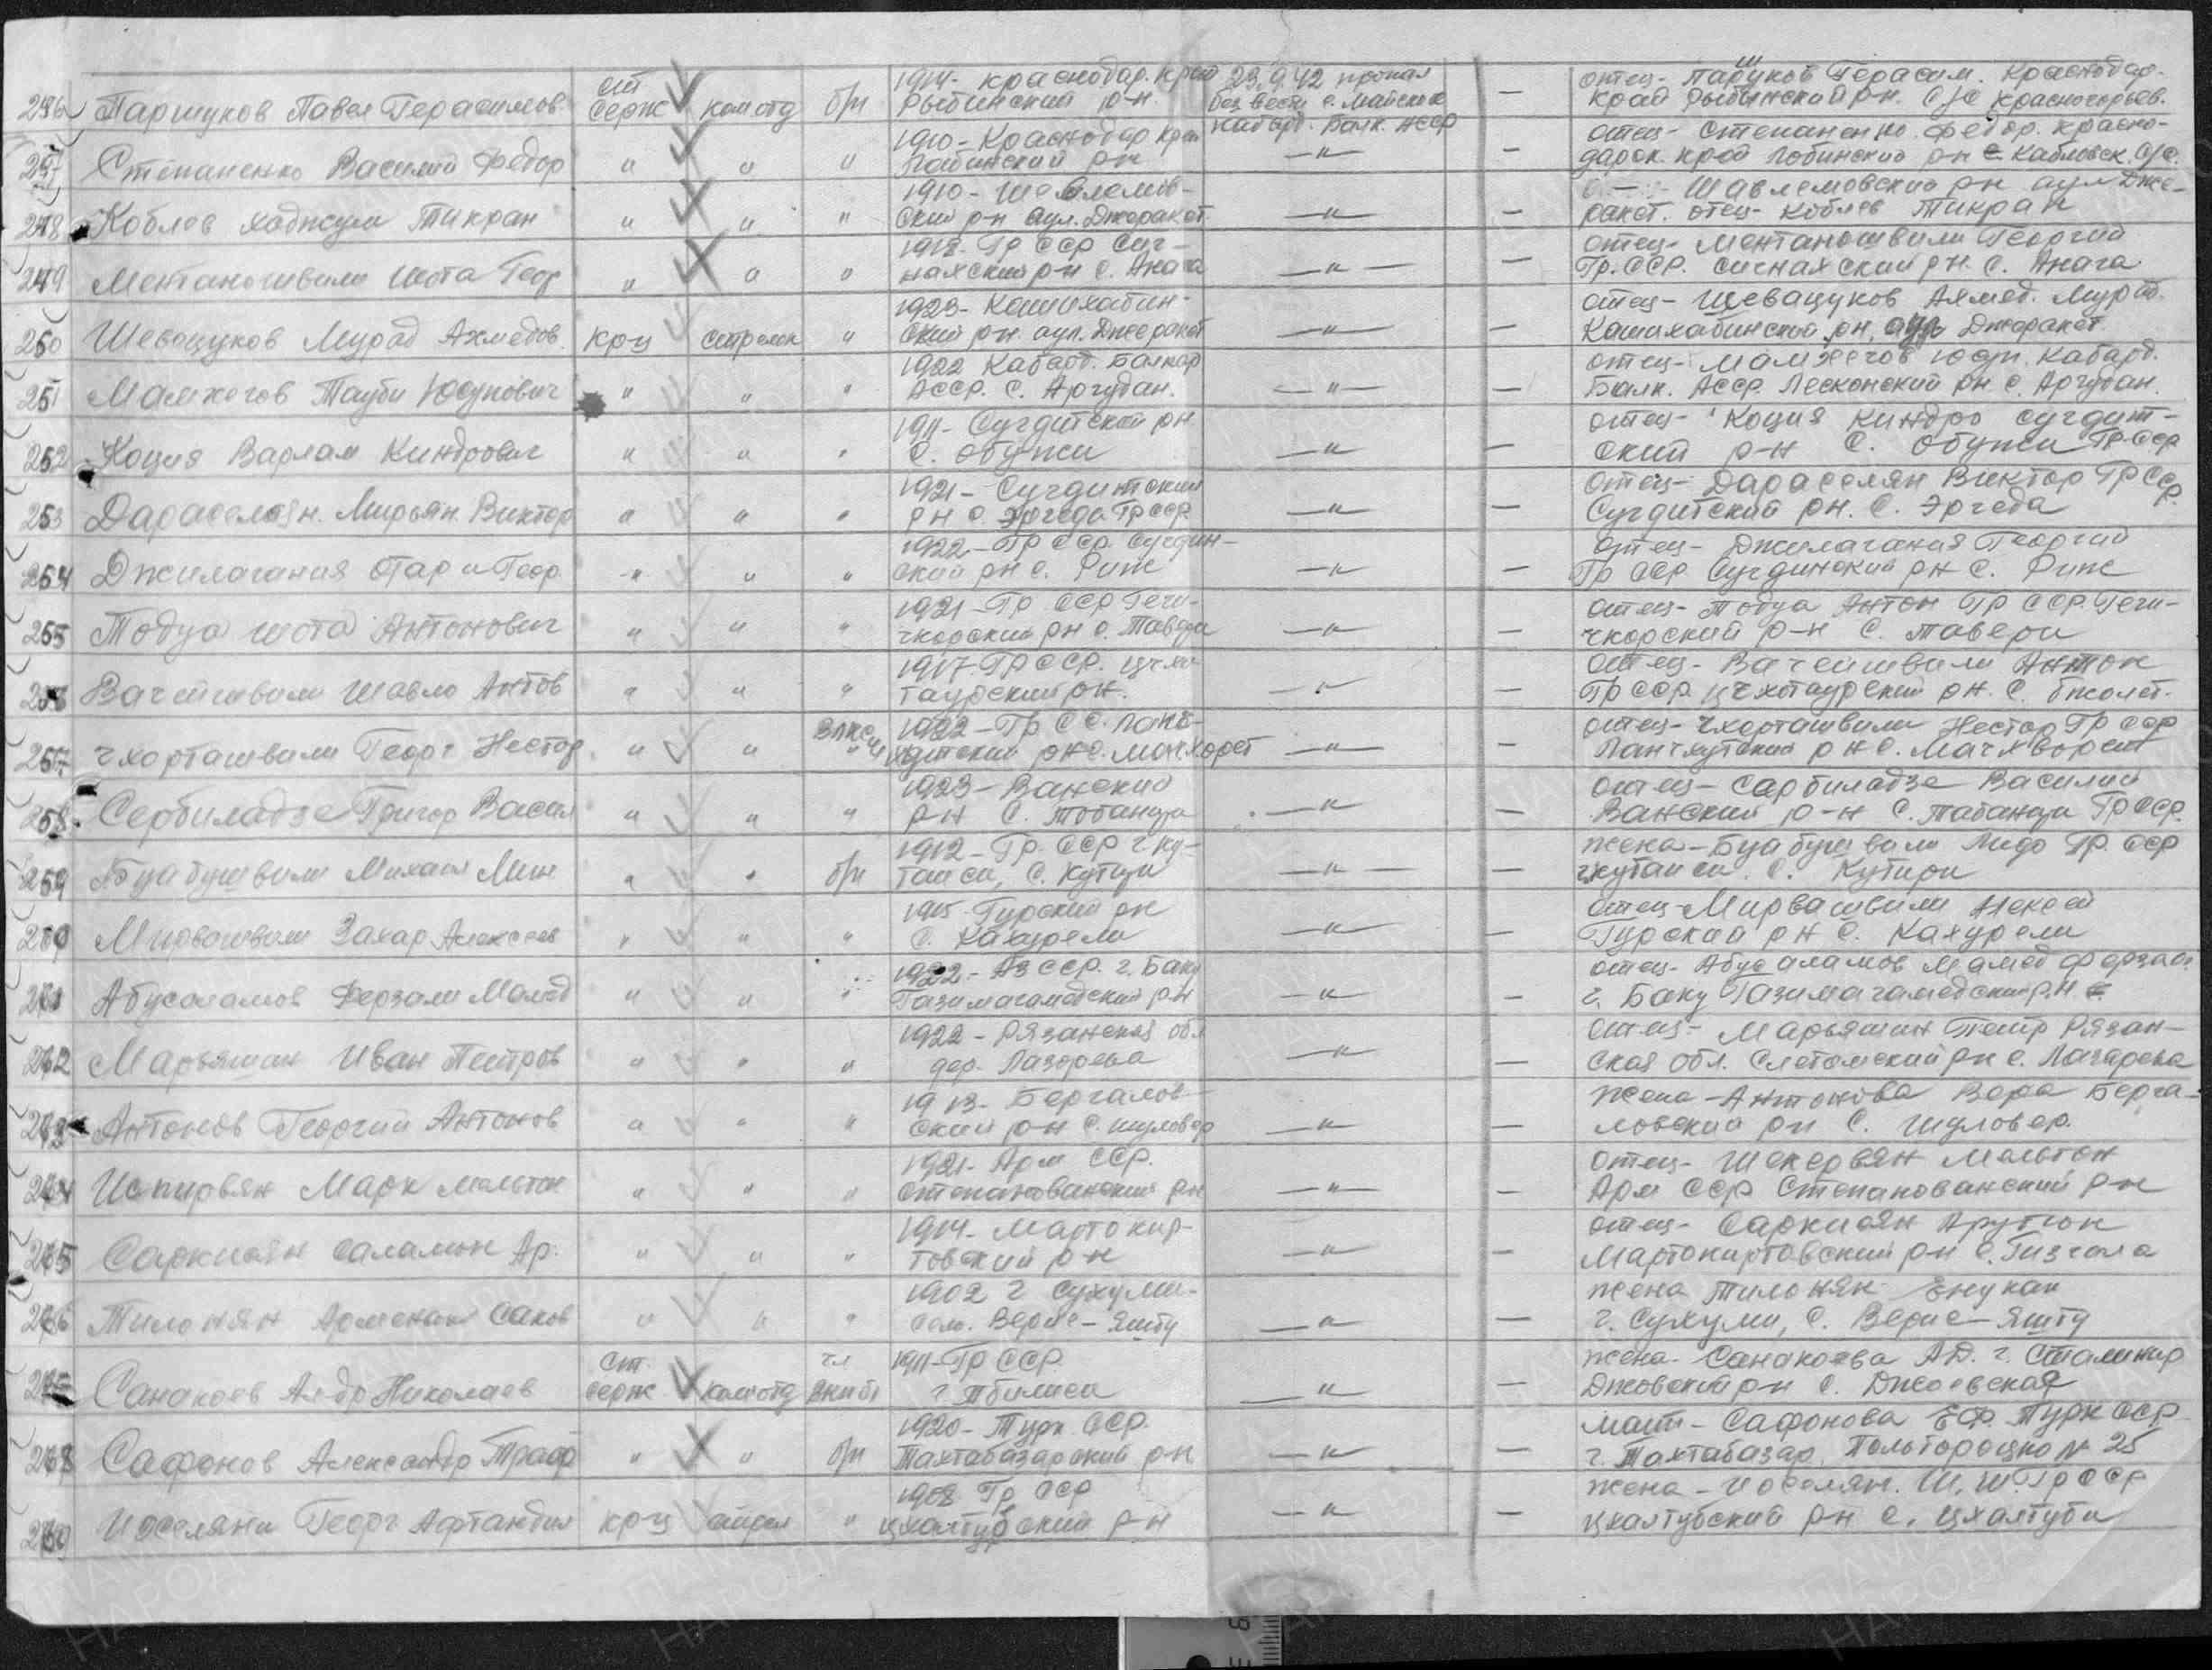 246 Паршуков Павел Герасимов ст серж ком отд б/п 1914- Краснодар. край Рыбинский р-н. 23.9.42 пропал без вести с. Майское Кабард. Балк. АССР — отец- Паршуков Герасим. Краснодар. край Рыбинский р-н. С/С Красногорьев.
247 Степаненко Василий Федор " " " 1910- Краснодар край Лабинский рн —"— — отец- Степаненко Федор. Красно-
дарск. край Лобинский рн с. Кабловск. С/С.
248 Коблев Хаджум Тикран " " " 1910- Шавлемов-
ский р-н аул. Джеракет. —"— — Шавлемовский рн аул Дже-
ракет. отец- Коблев Тикран
249 Ментаношвили Шота Геор " " " 1918. Гр ССР Сиг-
нахский р-н с. Анага —"— — отец- Ментаношвили Георгий
Гр. ССР. Сигнахский р-н. с. Анага.
250 Шевацуков Мурад Ахмедов. кр-ц стрелок " 1923- Кошихабин-
ский р-н. аул. Джеракет —"— — отец- Шевацуков Ахмед. Мурад.
Кошихабинский рн. аул Джеракет.
251 Мамхегов Тауби Юсупович " " " 1922 Кабард. Балкар
АССР. с. Аргудан. —"— — отец- Мамхегов Юсуп. Кабард.
Балк. АССР. Лесконский рн с. Аргудан.
252 Коция Варлам Киндрович " " " 1911- Сугдитский рн.
с. Обужи —"— — отец- Коция Киндро Сугдит-
ский р-н с. Обужи Гр ССР
253 Дараселян. Мирьян. Виктор " " " 1921- Сугдитский
рн с. Эргеда Гр ССР —"— — отец- Дараселян Виктор Гр ССР.
Сугдитский рн. с. Эргеда
254 Джилагания Отари Геор. " " " 1922- Гр ССР Сугдин-
ский рн с. Риж —"— — отец- Джилагания Георгий
Гр ССР Сугдинский рн с. Риж
255 Тодуа Шота Антонович " " " 1921- Гр ССР Геги-
чкорский рн с. Тавери —"— — отец- Тодуа Антон Гр ССР. Геги-
чкорский р-н с. Тавери
256 Вачейшвили Шавло Антов " " " 1917. Гр ССР.
таурский рн. —"— — отец- Вачейшвили Антон
Гр ССР. Цчхотаурский рн. с.
257 Чхорташвили Георг Нестор " " " 1922- Гр ССР.
хутский рн с. —"— — отец- Чхорташвили Нестор Гр ССР
Ланчхутский р-н с.
258 Сербиладзе Григор Васил " " " 1923- Ванский
рн с. Тобаниэри —"— — отец- Сарбиладзе Василий
Ванский р-н с. Гр ССР.
259 Буабушвили Михаил Мих " " б/п 1912- Гр. ССР г Ку-
таиси, с. Кутири —"— — жена- Буабушвили Лидо Гр. ССР
г. Кутаиси. с. Кутири
260 Мирвашвили Захар Алексеев " " " 1915- Гурский рн
с. Кахурели —"— — отец- Мирвашвили Алексей
Гурский рн с. Кахурели
261 Абусаламов Ферзали Мамед " " " 1922- Аз ССР. г. Баку
Газимагамедский р-н —"— — отец- Абусаламов Мамед
г. Баку Газимагамедский р.н
262 Марьяшин Иван Петров " " " 1922- Рязанская обл
дер. Лазорева —"— — отец- Марьяшин Петр Рязан-
ская обл. рн с. Лагарева
263 Антонов Георгий Антонов " " " 1913- Боргалов-
ский рн с. Шуловер —"— — жена- Антонова Вера Борга-
ловский рн с. Шуловер.
264 Испирьян Марк Мелктон " " " 1921- Арм ССР.
Степанованский рн —"— — отец- Мелктон
Арм ССР Степанованский р-н
265 Саркисян Саламон Ар. " " " 1914- Мартокир-
товский рн —"— — отец- Саркисян Арутюн
Мартокиртовский рн с.
266 Тилонян Арменак Саков " " " 1902 г Сухуми.
сел. Верие-Яшту —"— — жена Тилонян Енукан
г. Сухуми, с. Верие-Яшту
267 Санакоев Ал-др Николаев ст. серж ком отд чл ВКП(б) 1911- Гр ССР.
г Тбилиси —"— — жена- Санакоева А.Д. г. Сталинир
Джовский рн с. Джоевская
268 Сафонов Александр " " б/п 1920- Турк ССР.
Тахтабазарский р-н —"— — мать- Сафонова Е.Ф. Турк ССР
г. Тахтабазар, № 25
269 Иоселяни Георг Афтандил кр-ц стрел " 1908 Гр ССР
Цхалтубский р-н —"— — жена- Иоселян. Ш.Ш. Гр ССР
Цхалтубский р-н с. Цхалтуби